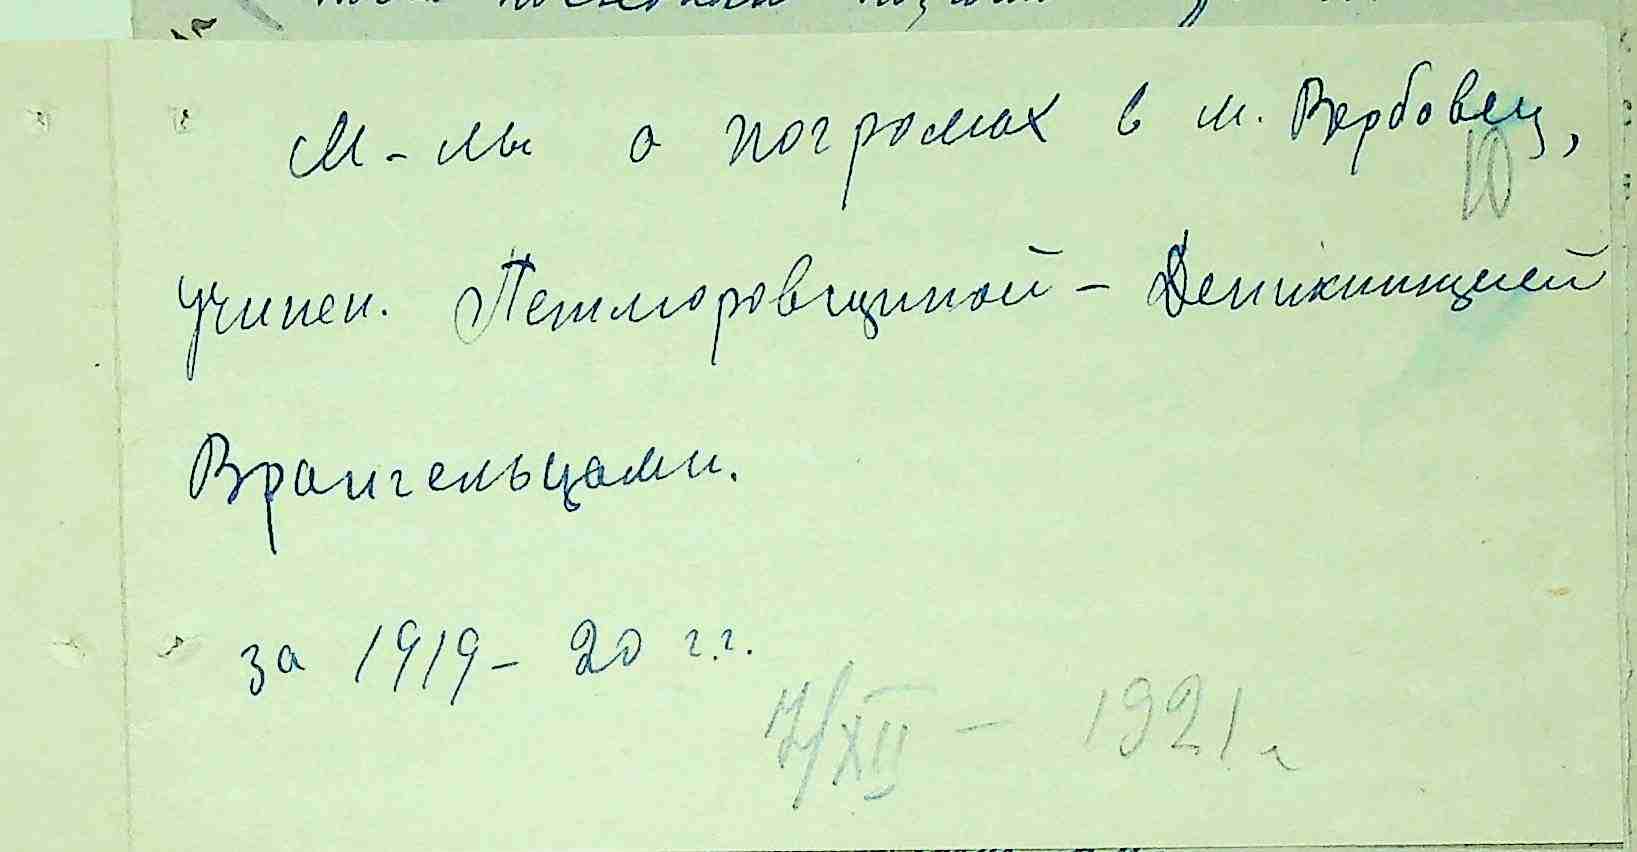 М-лы о погромах в м. Вербовец,
10
учинен. Петлюровщиной - Деникинщией
Врангельцами.
за 1919-20 г.г.
7/XII - 1921 г.